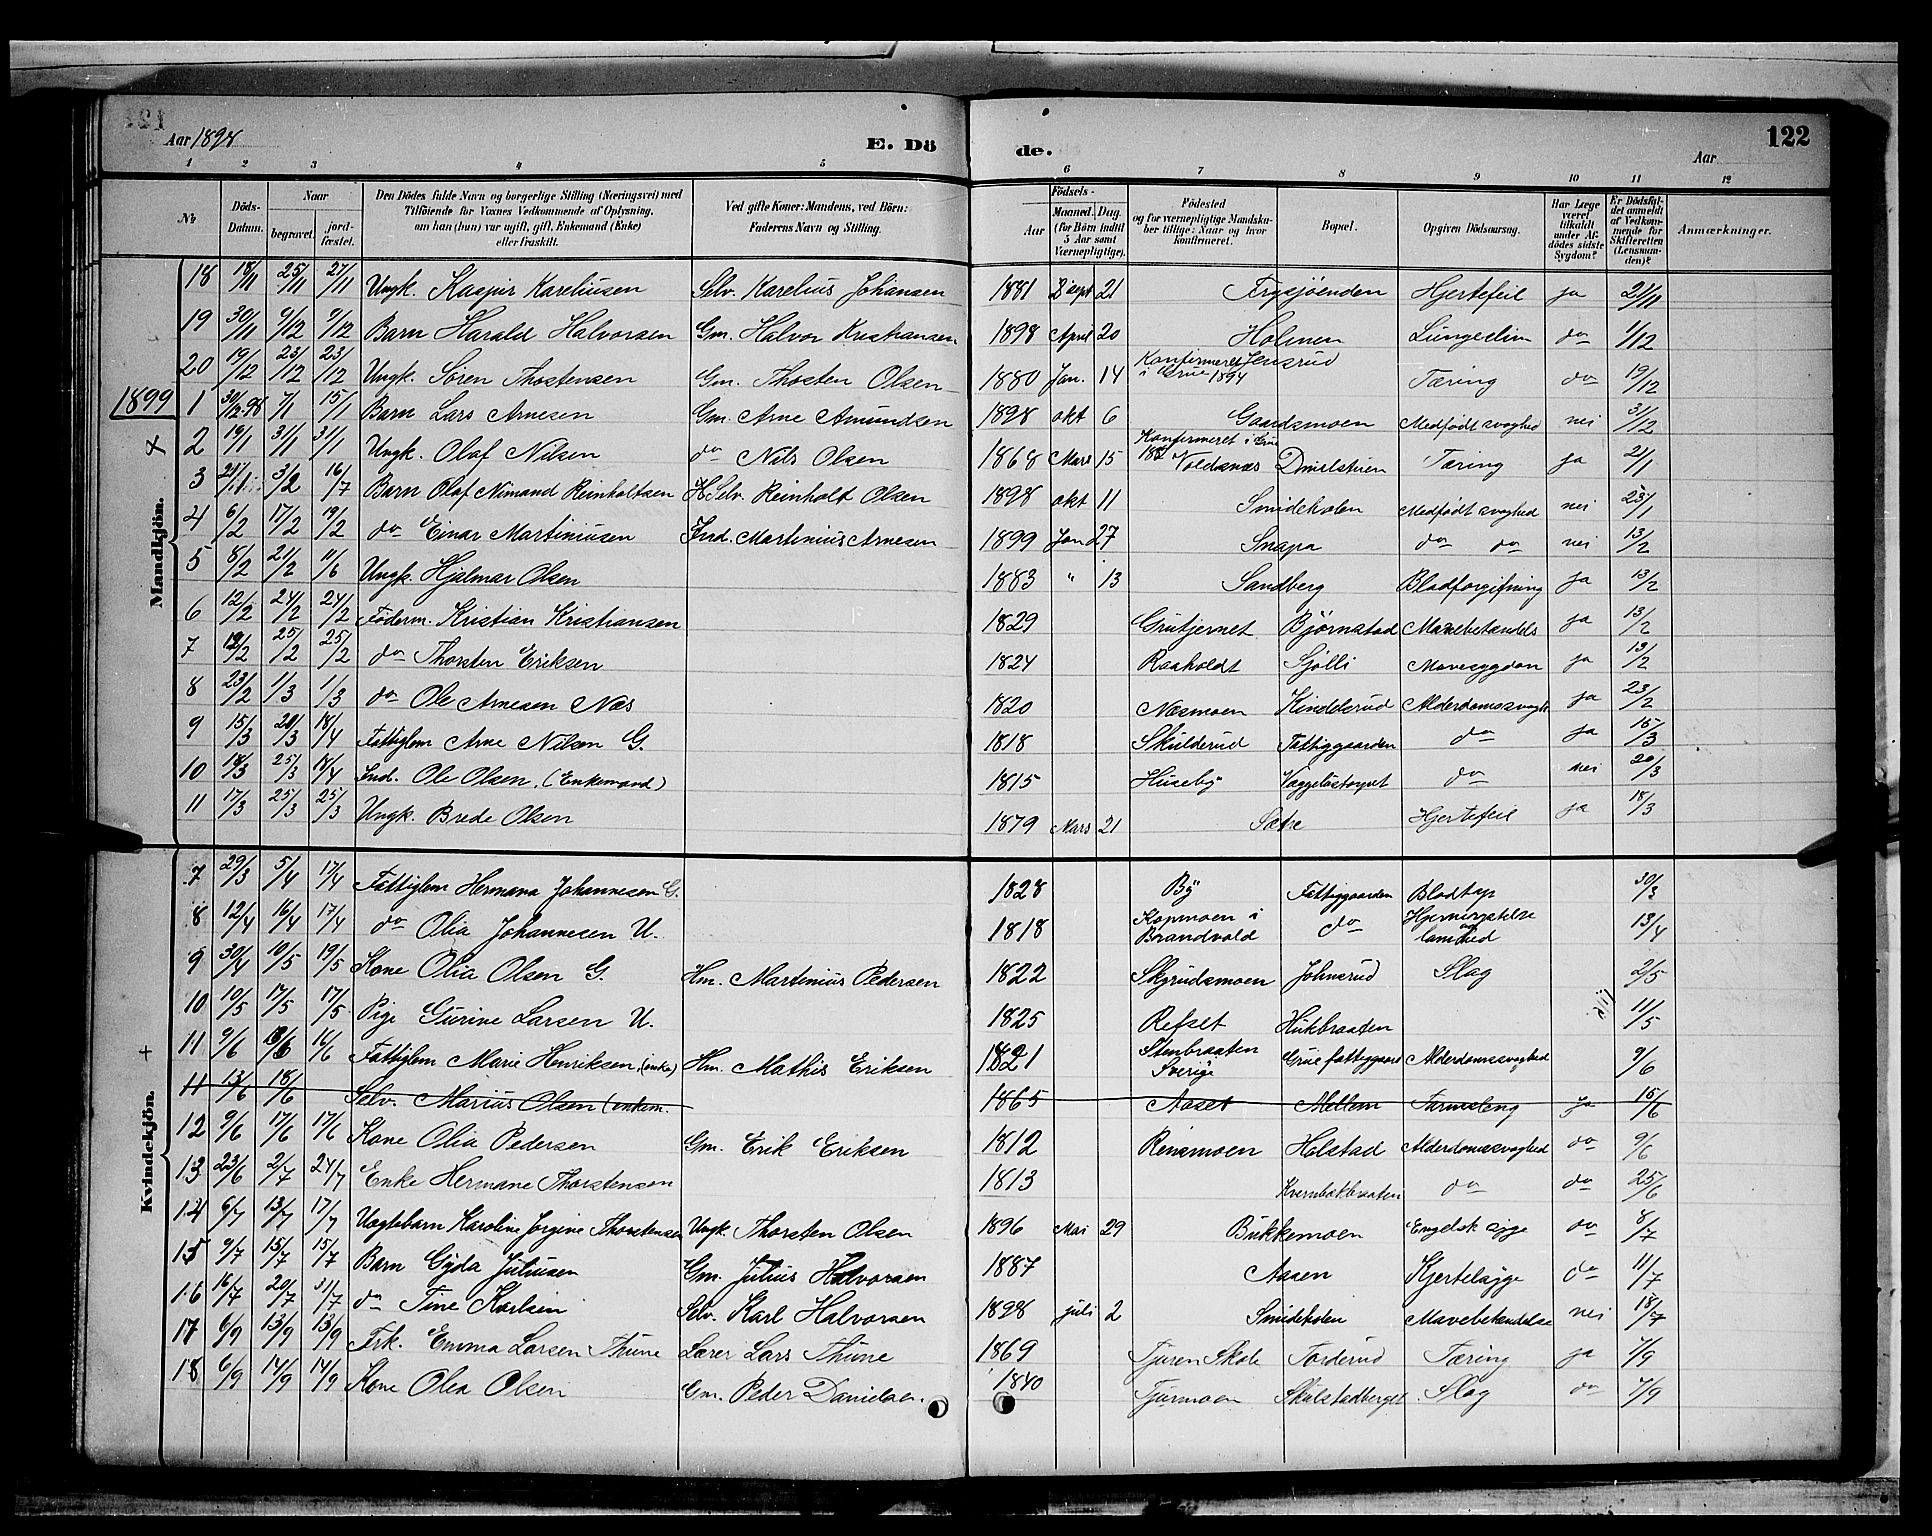 121
Aar 1898
E. Dö
de.
122
Aar
1 2 3 4 5 6 7 8 9 10 11 12
No
Döds-Datum.
Naar
begravet.
jordfæstet.
Den Dödes fulde Navn og borgerlige Stilling (Næringsvei) med Tilföiende for Voxnes Vedkommende af Oplysning, om han (hun) var ugift, gift, Enkemand (Enke) eller fraskilt.
Ved gifte Koner: Mandens, ved Börn: Faderens Navn og Stilling.
Födsels-
Aar
Maaned. Dag.
(for Börn indtil 5 Aar samt Værnepligtige).
Födested og for værnepligtige Mandskaber tillige: Naar og hvor konfirmeret.
Bopæl.
Opgiven Dödsaarsag.
Har Læge været tilkaldt under Afdödes sidste Sygdom?
Er Dödsfaldet anmeldt af Vedkommende for Skifteretten (Lensmanden)?
Anmærkninger.
Mandkjön.
18 18/11 25/11 27/11 Ungk. Kaspar Kareliusen Selv. Karelius Johansen 1881 21 Frysjøenden Hjertefeil ja 21/11
19 30/11 9/12 9/12 Barn Harald Halvorsen Gm. Halvor Kristiansen 1898 April 20 Holmen do 1/12
20 19/12 23/12 23/12 Ungk. Søren Thostensen Gm. Thosten Olsen 1880 Jan. 14 Konfirmeret i Grue 1894 Jensrud Tæring do 19/12
1899
1 30/12-98 7/1 15/1 Barn Lars Arnesen Gm. Arne Amundsen 1898 okt 6 Gaardsmoen Medfødt svaghed nei 31/12
2 19/1 31/1 31/1 Ungk. Olaf Nilsen do Nils Olsen 1868 Mars 15 Konfirmeret i Grue Voldsnæs Tæring ja 21/1
3 21/1 3/2 16/7 Barn Olaf Nimand Reinholtsen HSelv. Reinholt Olsen 1898 okt 11 Smideholen Medfødt svaghed nei 23/1
4 6/2 17/2 19/2 do Einar Martiniusen Ind. Martinius Arnesen 1899 Jan 27 Snapa do do nei 13/2
5 8/2 21/2 11/6 Ungk. Hjalmar Olsen 1883 " 13 Sandberg Blodforgifning ja 13/2
6 12/2 24/2 24/2 Føderm. Kristian Kristiansen 1829 Grutjernet Bjørnstad Mavebetændels ja 13/2
7 12/2 25/2 25/2 do Thorsten Eriksen 1824 Raaholdt Sjølli Mavesygdom ja 13/2
8 23/2 1/3 1/3 do Ole Arnesen Næs 1820 Næsmoen Kindelsrud Alderdomssvagh ja 23/2
9 15/3 20/3 18/4 Fattiglem Arne Nilsen G. 1818 Skulderud Fattiggaarden do ja 15/3
10 18/3 25/3 18/4 Ind. Ole Olsen. (Enkemand) 1815 Huseby do nei 20/3
11 17/3 25/3 25/3 Ungk. Brede Olsen 1879 Mars 21 Sætre Hjertefeil ja 18/3
Kvindekjön.
7 29/3 5/4 17/4 Fattiglem Hermana Johannesen G. 1828 By Fattiggaarden Blodtap 30/3
8 12/4 16/4 17/4 do Olia Johannesen U. 1818 Kopmoen i Brandvold do Hjernerystelse og lamhed 13/4
9 30/4 10/5 19/5 Kone Olia Olsen G. Hm. Martinius Pedersen 1822 Skyrudsmoen Johnsrud Slag 2/5
10 10/5 17/5 17/5 Pige Gurine Larsen U. 1825 Refset Hukbraaten 11/5
11 9/6 16/6 16/6 Fattiglem Marie Henriksen (enke) Hm. Mathis Eriksen 1821 Stenbraaten Sverige Grue fattiggaard Alderdomssvaghed 9/6
11 13/6 18/6 Selv. Marius Olsen (enkem. 1865 Aaset Mellem ja 15/6
12 9/6 17/6 17/6 Kone Olia Pedersen Gm. Erik Eriksen 1812 Rensmoen Holstad Alderdomssvaghed do 9/6
13 23/6 2/7 24/7 Enke Hermane Thorstensen 1813 Kvernbækbraaten do do 25/6
14 6/7 13/7 17/7 Uægtebarn Karoline Jørgine Thorstensen Ungk. Thorsten Olsen 1896 Mai 29 Bukkemoen Engelsk syge do 8/7
15 9/7 15/7 15/7 Barn Gyda Juliusen Gm. Julius Halvorsen 1887 Aasen Kjertelsyge do 11/7
16 16/7 20/7 31/7 do Tine Karlsen Selv. Karl Halvorsen 1898 juli 2 Smideholen Mavebetændelse nei 18/7
17 6/9 13/9 13/9 Frk. Emma Larsen Thune Lærer Lars Thune 1869 Tjuren Skole Torderud Tæring ja 7/9
18 6/9 14/9 14/9 Kone Olea Olsen Gm. Peder Danielsen. 1840 Tjurmoen Skulstadberget Slag do 7/9